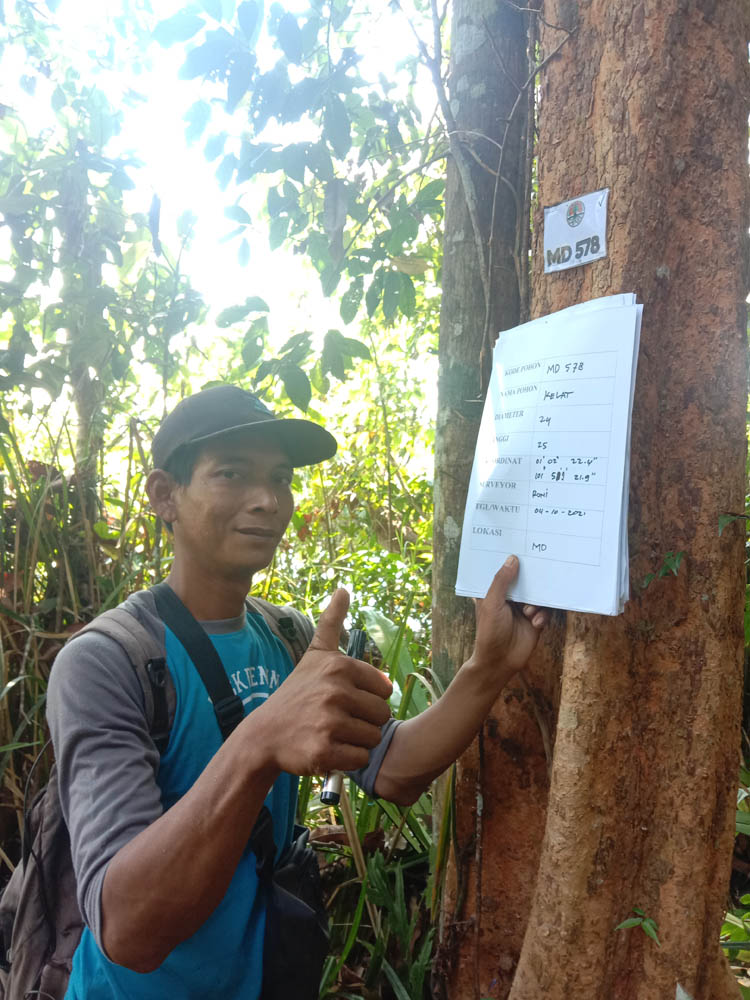 MD 578
KODE POHON MD 578
NAMA POHON KELAT
DIAMETER 24
INGGI 25
ORDINAT 01° 02' 22.4"
SURVEYOR RONI
EGL/WAKTU 04-10-2021
LOKASI MD